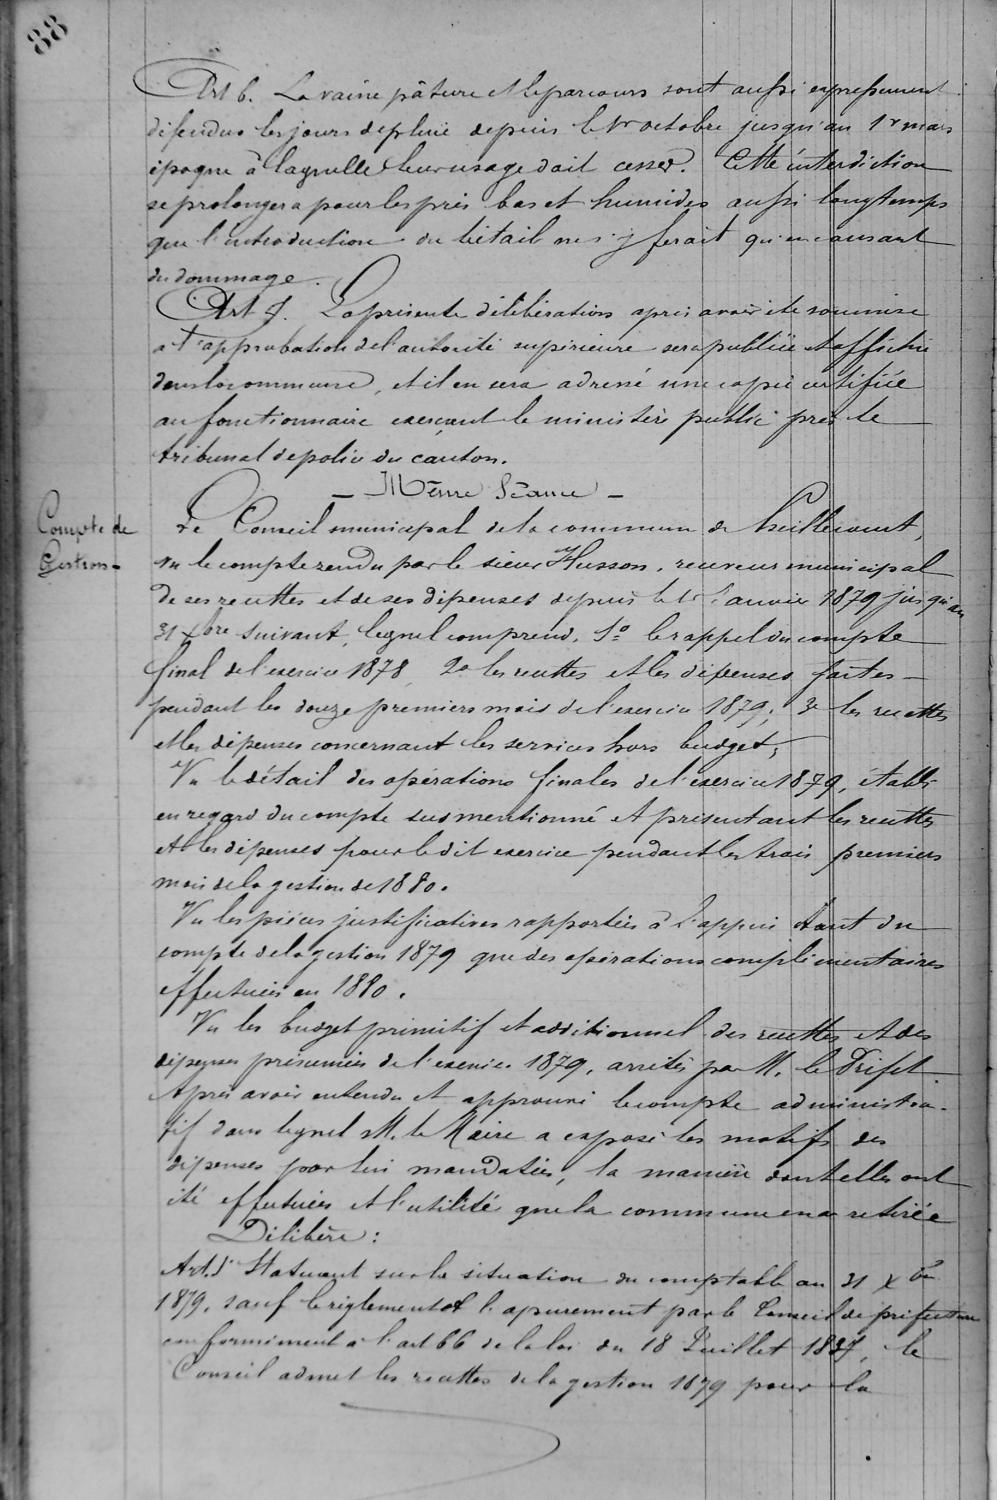 88
Art 6. La vaine pâture et le parcours sont aussi expressément
défendus les jours de pluie depuis le 1er octobre jusqu'au 1r mars
époque à laquelle leur usage doit cesser. Cette interdiction
se prolongera pour les prés bas et humides aussi longtemps
que l'introduction du bétail ne s'y ferait qu'en causant
du dommage.
Art 7. La présente délibérations après avoir été soumise
a l'approbation de l'autorité supérieure sera publiée et affichée
dans la commune, et il en sera adressé une copie certifiée
au fonctionnaire exerçant le ministère public près le
tribunal de police du canton.
— Même Séance —
Compte de
Gestion -
Le Conseil municipal de la commune de Huilliécourt,
Vu le compte rendu par le sieur Husson, receveur municipal
de ses recettes et de ses dépenses depuis le 1r Janvier 1879 jusqu'au
31 Xbre suivant, lequel comprend, 1o le rappel du compte
final de l'exercice 1878, 2o les recettes et les dépenses faites
pendant les douze premiers mois de l'exercice 1879; 3o les recettes
et les dépenses concernant les services hors budget;
Vu le détail des opérations finales de l'exercice 1879, établi
en regard du compte susmentionné et présentant les recettes
et les dépenses pour le dit exercice pendant les trois premiers
mois de la gestion de 1880.
Vu les pièces justificatives rapportées à l'appui tant du
compte de la gestion 1879 que des opérations complémentaires
effectuées en 1880.
Vu les budget primitif et additionnel des recettes et des
dépenses présumées de l'exercice 1879, arrêtés par M. le Préfet.
Après avoir entendu et approuvé le compte administra-
tif dans lequel M. le Maire a exposé les motifs des
dépenses par lui mandatées, la manière dont elles ont
été effectuées et l'utilité que la commune en a retirée
Délibère:
Art. 1r Statuant sur la situation du comptable au 31 Xbre
1879, sauf le règlement et l'apurement par le Conseil de préfecture
conformément à l'art 66 de la loi du 18 Juillet 1837, le
Conseil admet les recettes de la gestion 1879 pour la